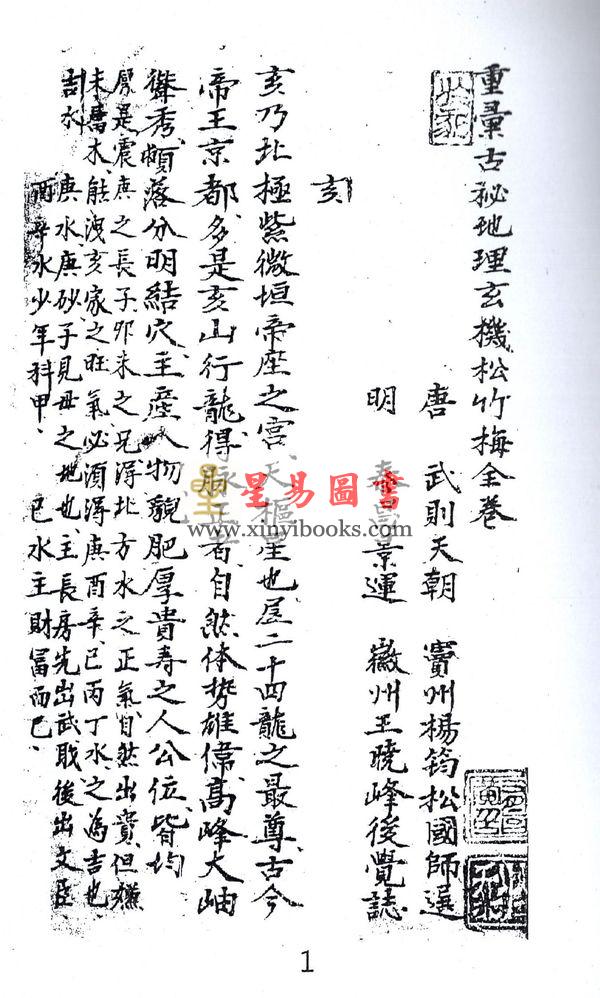 重彙古秘地理玄機松竹梅全卷
唐 武則天朝 竇州楊筠松國師選
明 泰昌景運 徽州王曉峰後覺誌
亥
亥乃北極紫微垣帝座之宮天樞星也居二十四龍之最尊古今
帝王京都多是亥山行龍得脉者自然体势雄偉高峰大岫
聳秀頓落分明結穴主產人物貌肥厚貴寿之人公位皆均
房是震庚之長子卯未之兄得北方水之正氣自然出貴但嫌
未為木能洩亥家之旺氣必須得庚酉辛巳丙丁水之為吉也
吉水 庚水庚砂子見母之地也主長房先出武職後出文臣
酉辛水少年科甲 巳水主財富而已
星易圖書
www.xinyibooks.com
1